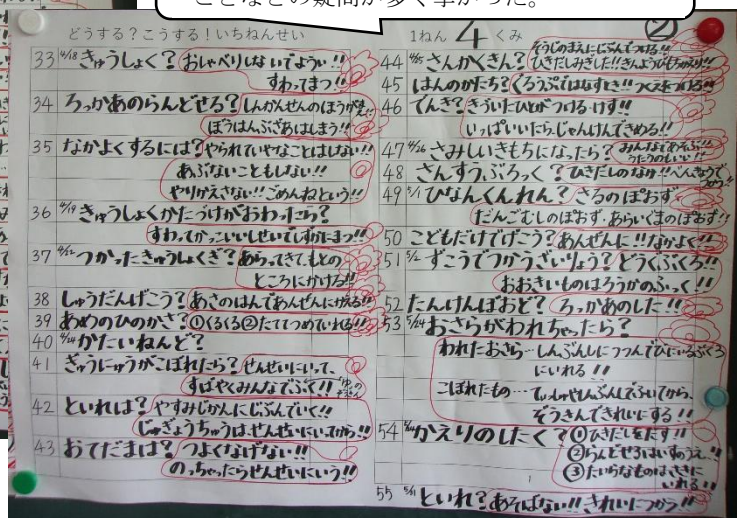 ことなどの疑問が多く挙がった。
どうする？こうする！いちねんせい
1ねん 4 くみ
②
33 4/18 きゅうしょく？ おしゃべりしないでようい!!
すわってまつ!!
34 ろっかあのらんどせる？ しんかんせんのほうがまえ
ぼうはんぶざあはしまう!!
35 なかよくするには？ やられていやなことはしない!!
あぶないこともしない!!
やりかえさない!!ごめんねという!!
36 4/19 きゅうしょくかたづけがおわったら？
すわってかっこいいしせいでしずかにまつ!!
37 つかったきゅうしょくぎ？ あらってきて、もとの
ところにかける!!
38 しゅうだんげこう？ あさのはんであんぜんにかえる!!
39 あめのひのかさ？ ①くるくる②たててつめていれる!!
40 4/24 かたいねんど？
41 ぎゅうにゅうがこぼれたら？ せんせいにいって、
すばやくみんなでふく!!
42 といれは？ やすみじかんにじぶんでいく!!
じゅぎょうちゅうは、せんせいにいってから!!
43 おてだまは？ つよくなげない!!
のっちゃったらせんせいにいう!!
44 4/25 さんかくきん？ そうじのまえにじぶんでつける!!
ひきだしみぎした!!きんようびもちかえり!!
45 はんのかたち？ ぐるうぷではなすとき!!つくえをつける!!
46 でんき？ きづいたひとがつける・けす!!
いっぱいいたらじゃんけんできめる!!
47 4/26 さみしいきもちになったら？ みんなであそぶ!!
うたうのもいい!!
48 さんすうぶろっく？ ひきだしのなか!!べんきょうで
つかう!!
49 5/1 ひなんくんれん？ さるのぽおず
だんごむしのぽおず・あらいぐまのぽおず!!
50 こどもだけでげこう？ あんぜんに!!なかよく!!
51 5/2 ずこうでつかうざいりょう？ どうぐぶくろ!!
おおきいものはろうかのふっく!!
52 たんけんばおど？ ろっかあのした!!
53 5/24 おさらがわれちゃったら？
われたおさら…しんぶんしにつつんでびにいるぶくろ
にいれる!!
こぼれたもの…てぃっしゅやしんぶんしでふいてから、
ぞうきんできれいにする!!
54 かえりのしたく？ ①ひきだしをだす!!
②らんどせるはいすのうえ!!
③たいらなものはさきに
いれる!!
55 5/31 といれ？ あそばない!!きれいにつかう!!